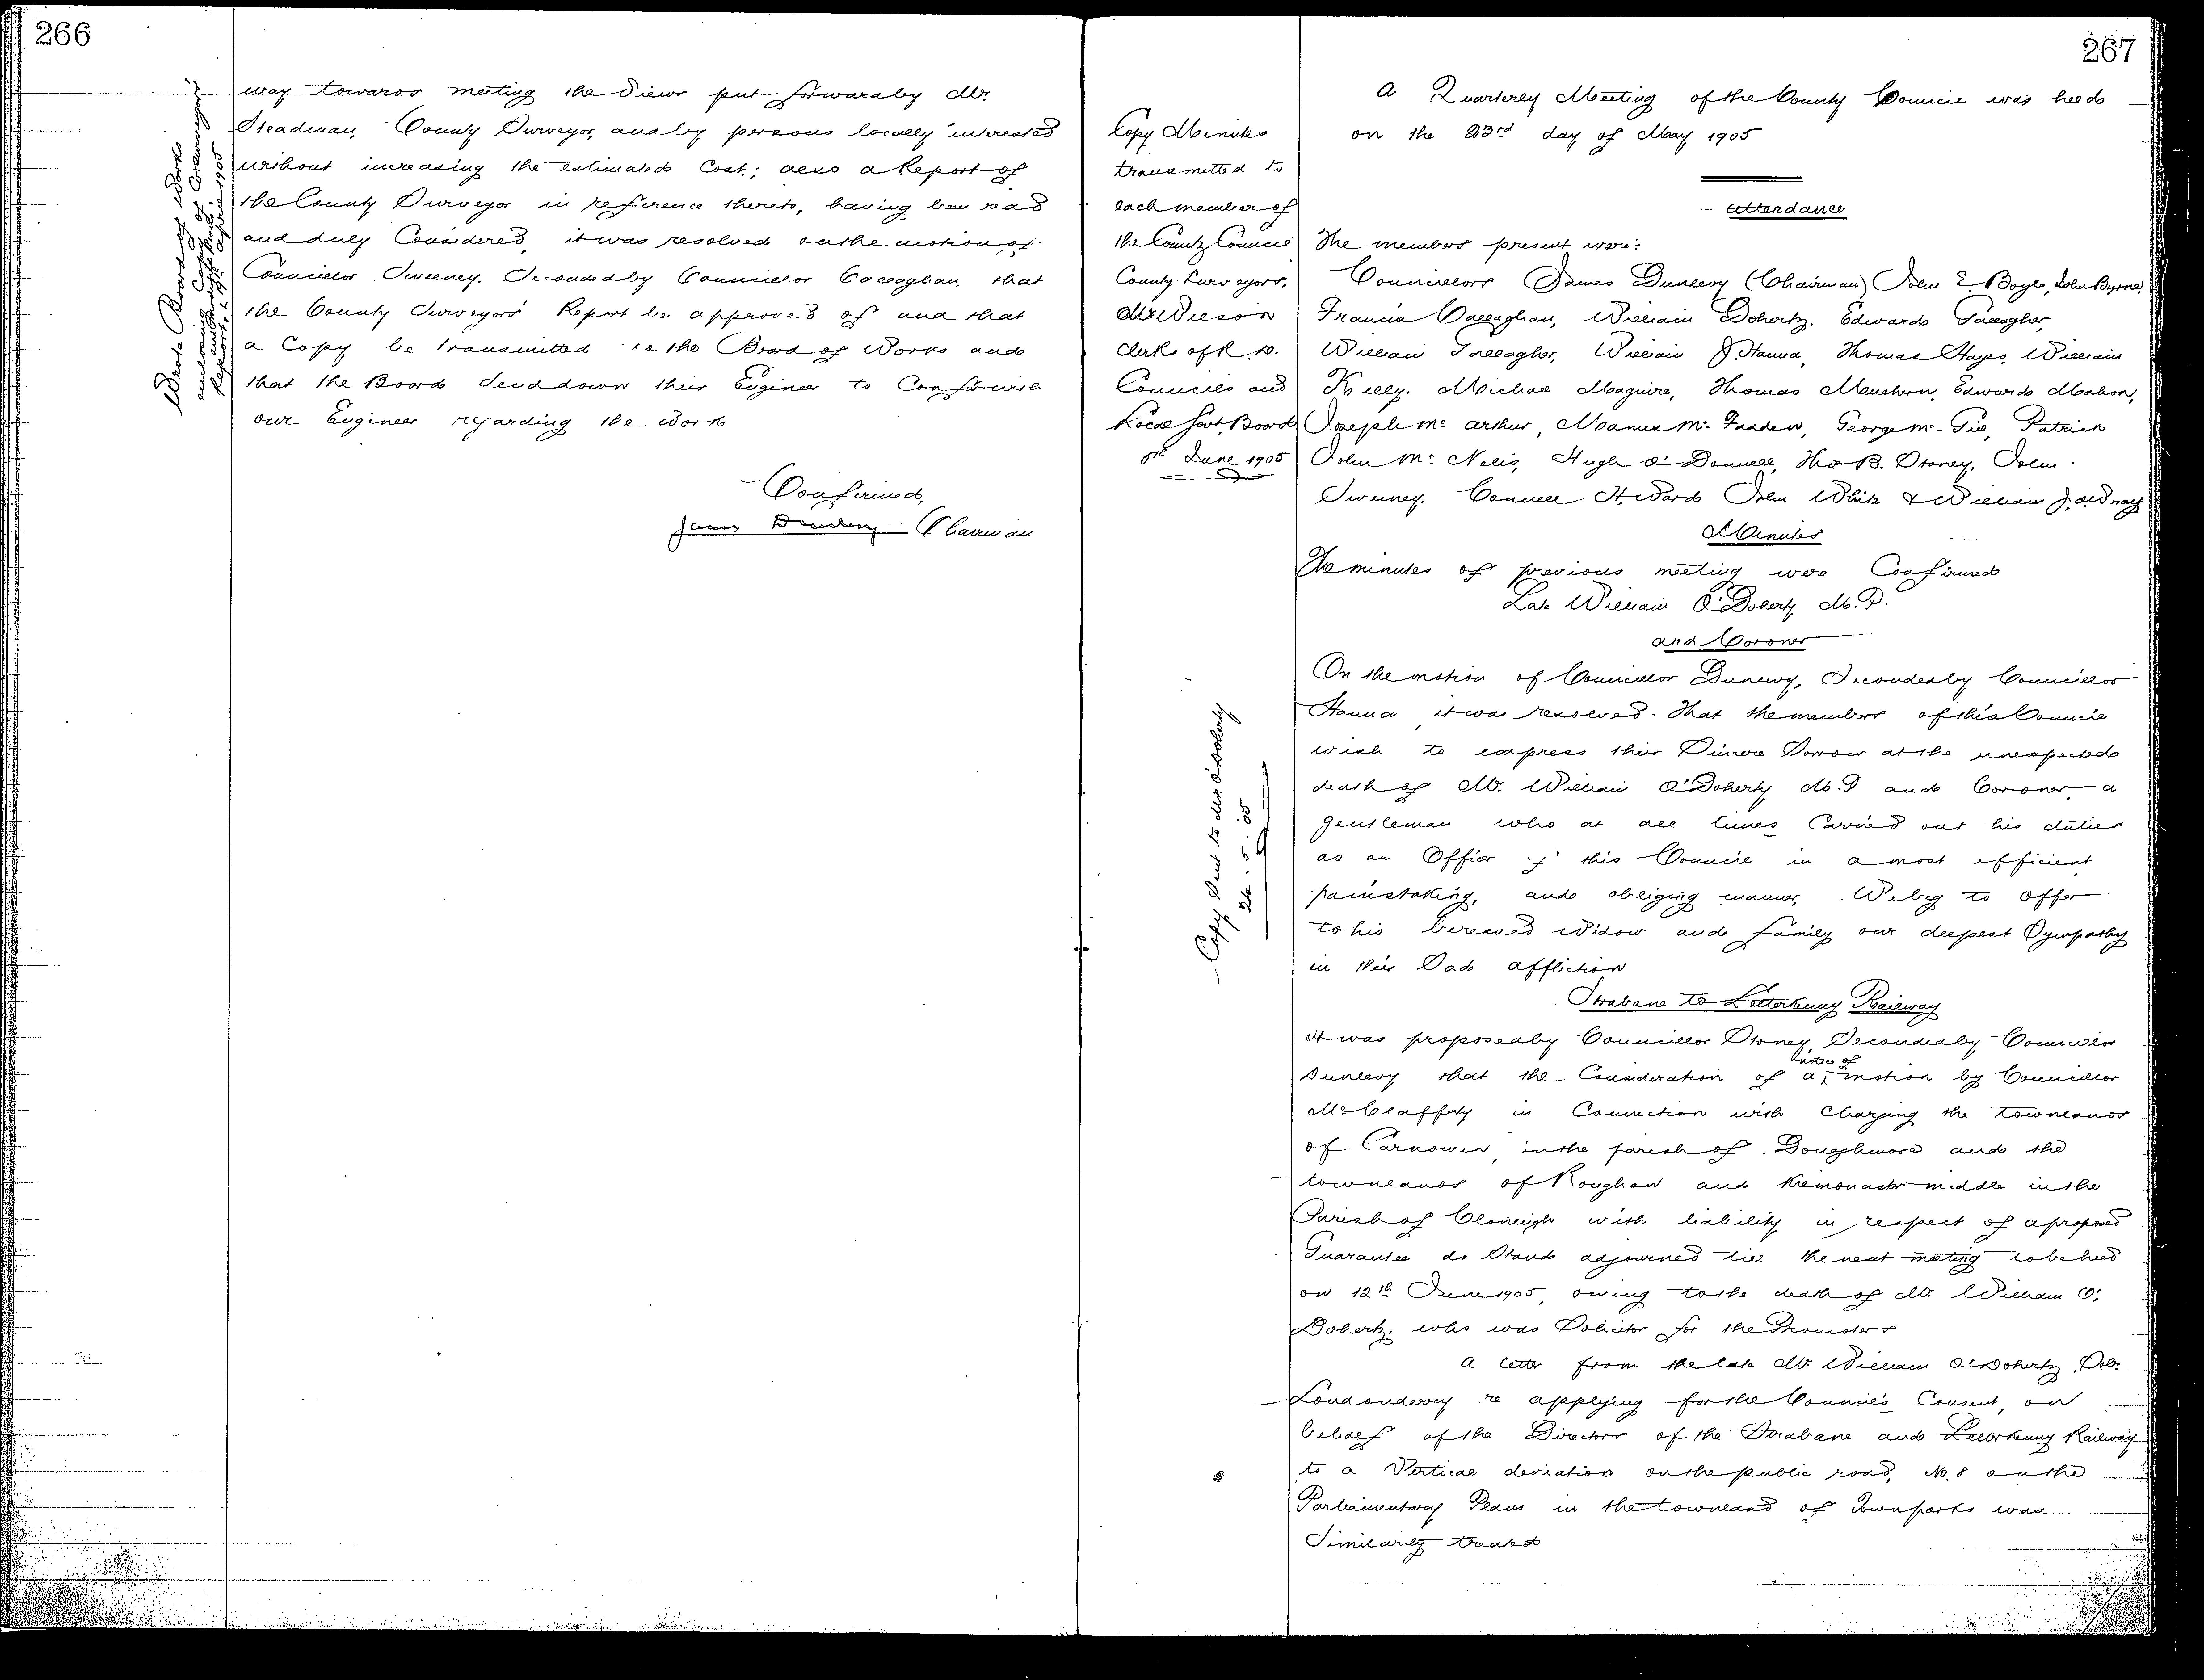 266
way towards meeting the views put forward by Mr.
Steadman, County Surveyor, and by persons locally interested
without increasing the estimated Cost; also a Report of
the County Surveyor in reference thereto, having been read
and duly Considered, it was resolved on the motion of
Councillor Sweeney. Seconded by Councillor Callaghan, that
the County Surveyors Report be approved of and that
a Copy be transmitted to the Board of Works and
that the Board send down their Engineer to Confer with
our Engineer regarding the work
Confirmed,
James Dunlevy Chairman
Wrote Board of Works
enclosing Copy of
Report
April 1905
267
A Quarterly Meeting of the County Council was held
on the 23rd day of May 1905
Copy Minutes
transmitted to
each member of
the County Council
County Surveyors,
Mr Wilson
Clerks of R. D.
Councils and
Local Govt. Board
June 1905
Attendance
The members present were:
Councillors James Dunlevy (Chairman) John E. Boyle, John Byrne,
Francis Callaghan, William Doherty. Edward Gallagher,
William Gallagher, William J. Hanna, Thomas Hayes, William
Kelly. Michael Maguire, Thomas Mulhern, Edward Mahon,
Joseph Mc Arthur, Manus Mc Fadden, George Mc Gee, Patrick
John Mc Nelis, Hugh O'Donnell, Thos B. Stoney, John
Sweeney. Connell Ward John White & William J. Wray
Minutes
The minutes of previous meeting were Confirmed
Late William O'Doherty M.P.
and Coroner
On the motion of Councillor Dunlevy, Seconded by Councillor
Hanna it was resolved. That the members of this Council
wish to express their Sincere Sorrow at the unexpected
death of Mr. William O'Doherty M.P and Coroner, a
gentleman who at all times Carried out his duties
as an Officer of this Council in a most efficient
painstaking, and obliging manner. We beg to offer
to his bereaved Widow and family our deepest Sympathy
in their Sad affliction
Copy Sent to Mrs O'Doherty
24.5.05
Strabane to Letterkenny Railway
It was proposed by Councillor Stoney, Seconded by Councillor
notice of
Dunlevy that the Consideration of a motion by Councillor
McClafferty in Connection with Charging the townlands
of Carnowen, in the parish of Donaghmore and the
townlands of Roughan and Kilmonaster middle in the
Parish of Clonleigh with liability in respect of a proposed
Guarantee do Stand adjourned till the next meeting to be held
on 12th June 1905, owing to the death of Mr. William O'
Doherty. who was Solicitor for the Promoters
A letter from the late Mr. William O'Doherty, Solr.
Londonderry re applying for the Council's Consent, on
behalf of the Directors of the Strabane and Letterkenny Railway
to a Vertical deviation on the public road, No. 8 on the
Parliamentary Plans in the townland of Townparks was
Similarly treated